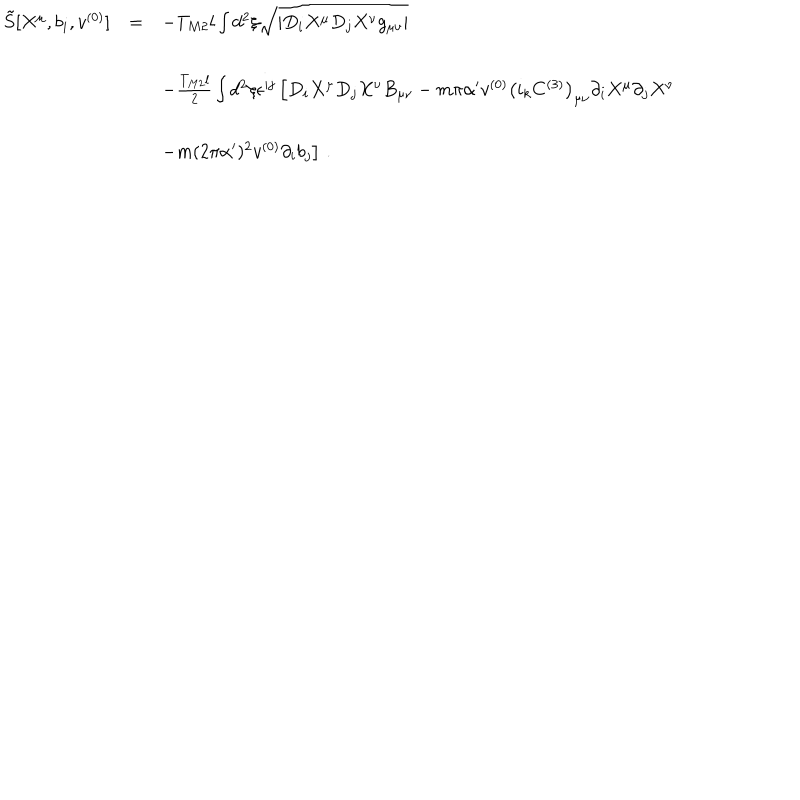 \tilde{S}[X^{\mu}, b_i, v^{(0)}] = -T_{M2} l \int d^2\xi \sqrt{|D_i X^{\mu} D_j X^{\nu} g_{\mu\nu}|}
-\frac{T_{M2} l}{2} \int d^2\xi \epsilon^{ij} \left[ D_i X^{\mu} D_j X^{\nu} B_{\mu\nu} - m\pi\alpha' v^{(0)} \left( i_k C^{(3)} \right)_{\mu\nu} \partial_i X^{\mu} \partial_j X^{\nu}
-m(2\pi\alpha')^2 v^{(0)} \partial_i b_j \right] .